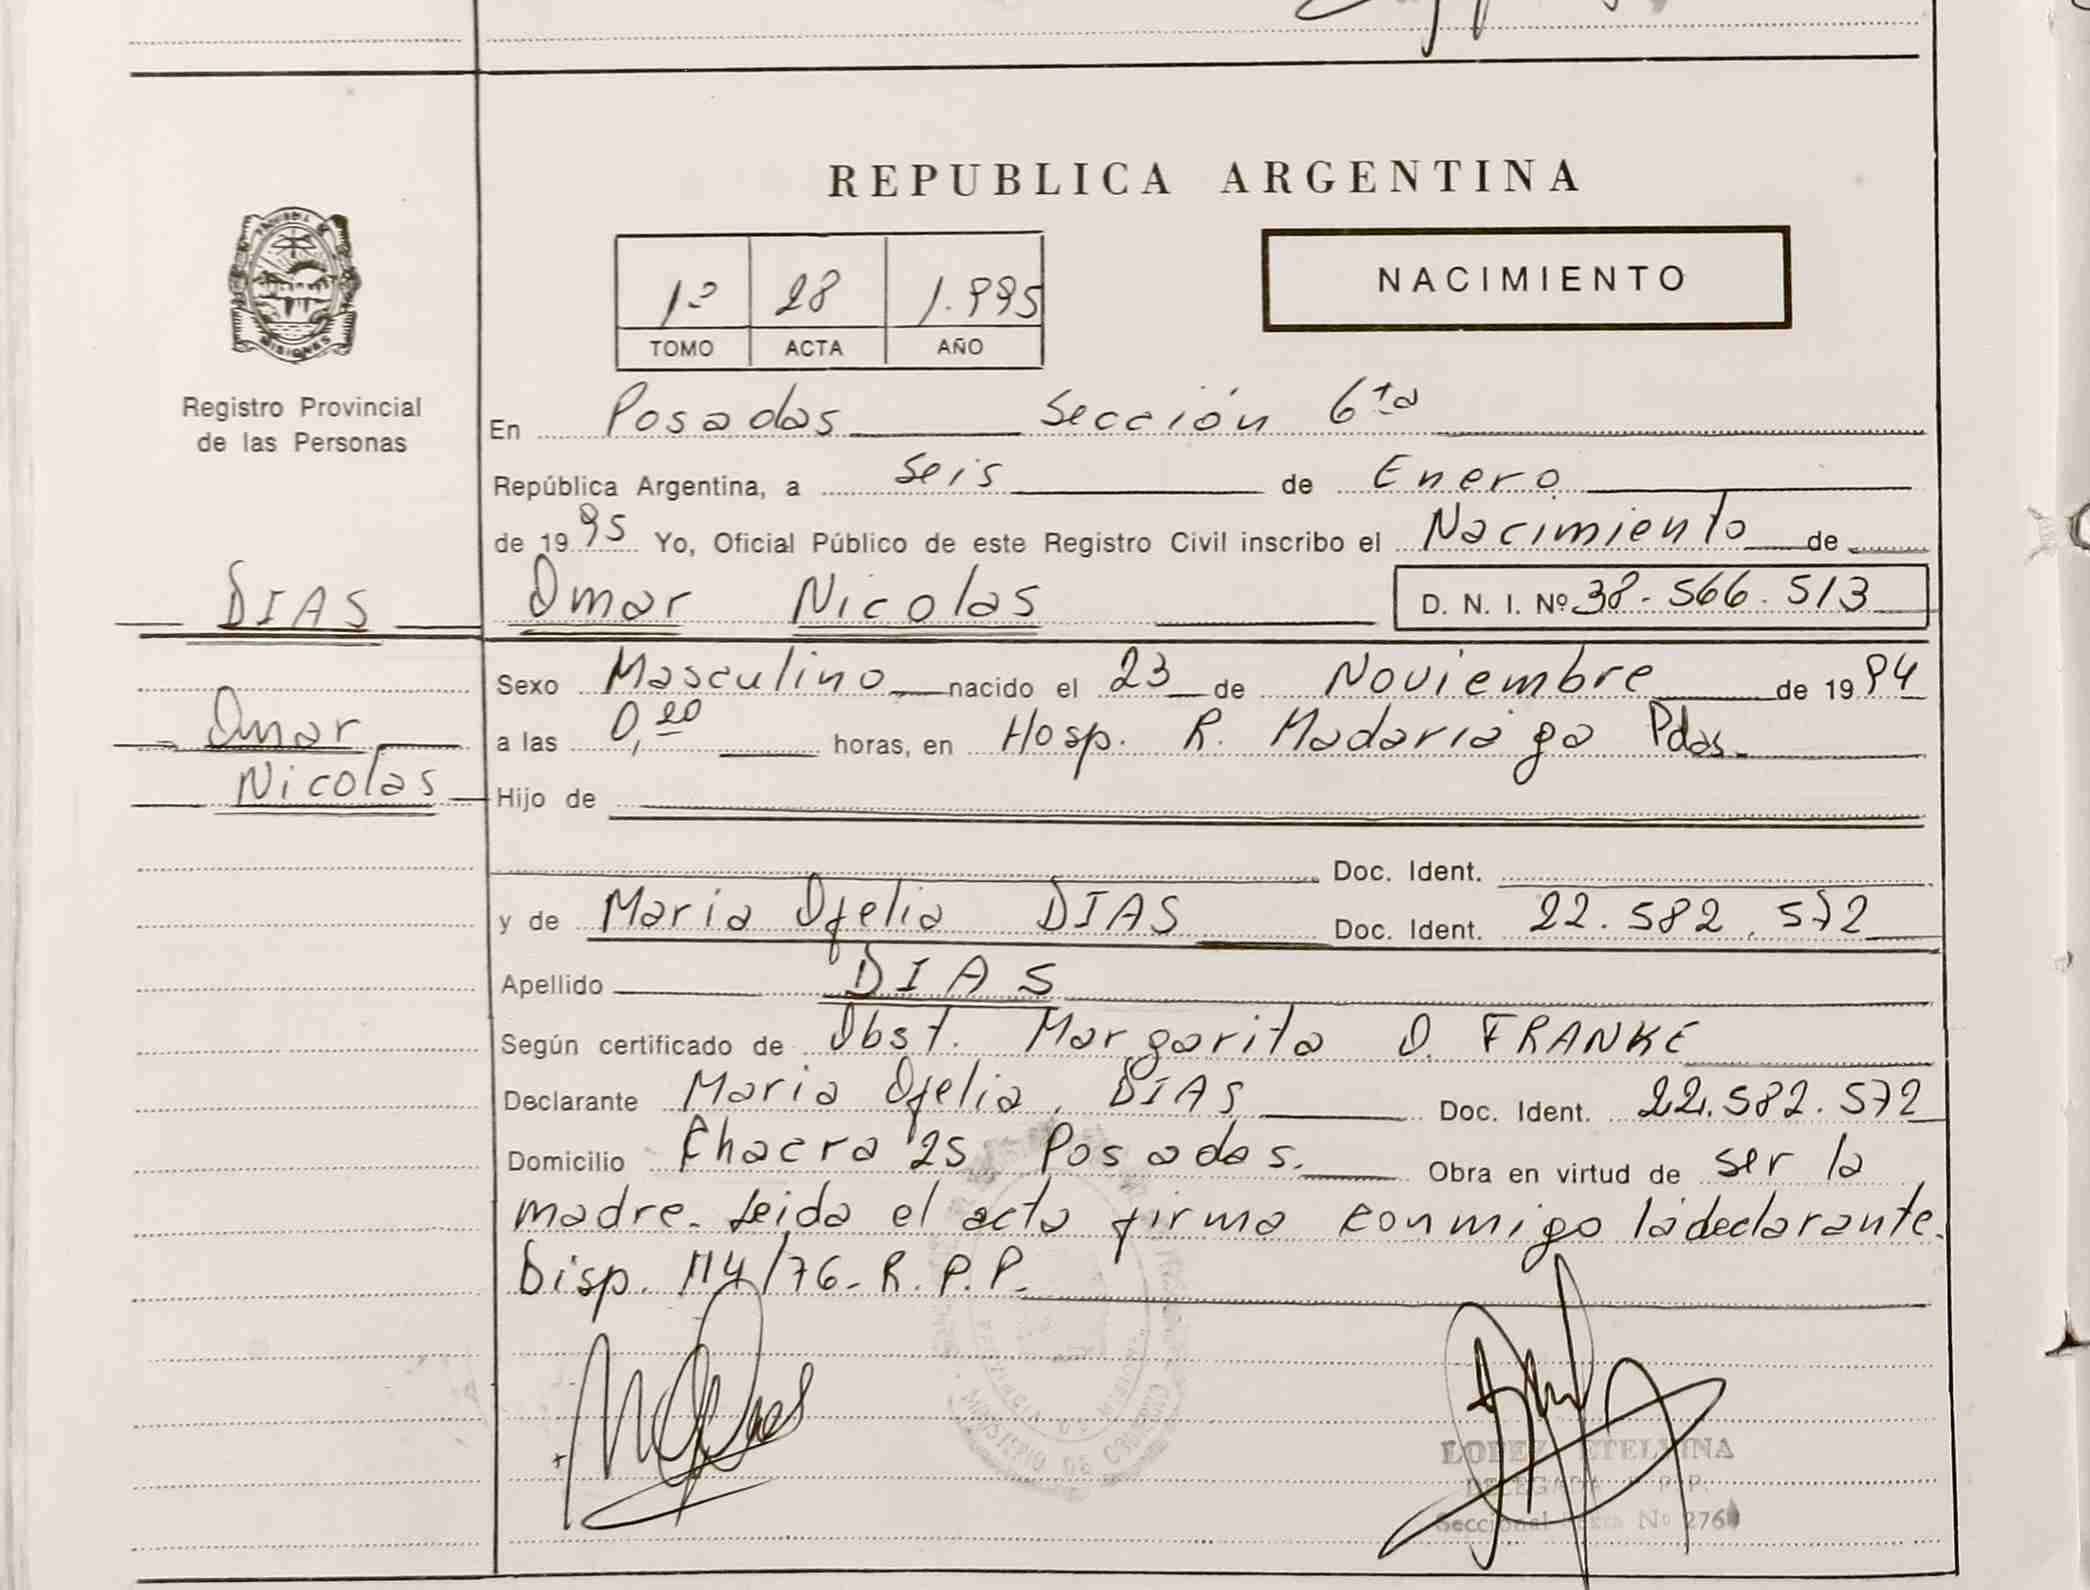 REPUBLICA ARGENTINA
NACIMIENTO
1º 28 1.995
TOMO ACTA AÑO
MISIONES
Registro Provincial
de las Personas
En Posadas Sección 6ta
República Argentina, a seis de Enero
de 1995 Yo, Oficial Público de este Registro Civil inscribo el Nacimiento de
DIAS
Omar Nicolas D. N. I. Nº 38.566.513
Sexo Masculino nacido el 23 de Noviembre de 1994
Omar
Nicolas
a las 0,20 horas, en Hosp. R. Madariaga Pdas.
Hijo de
Doc. Ident.
y de Maria Ofelia DIAS Doc. Ident. 22.582.572
Apellido DIAS
Según certificado de Obst. Margarita O. FRANKE
Declarante Maria Ofelia DIAS Doc. Ident. 22.582.572
Domicilio Chacra 25 Posadas. Obra en virtud de ser la
madre. Leida el acta firma conmigo la declarante.
Disp. 114/76-R.P.P.
MINISTERIO DE GOBIERNO
LOPEZ ETELVINA
DELEGADA R.P.P.
Seccional Sexta Nº 276